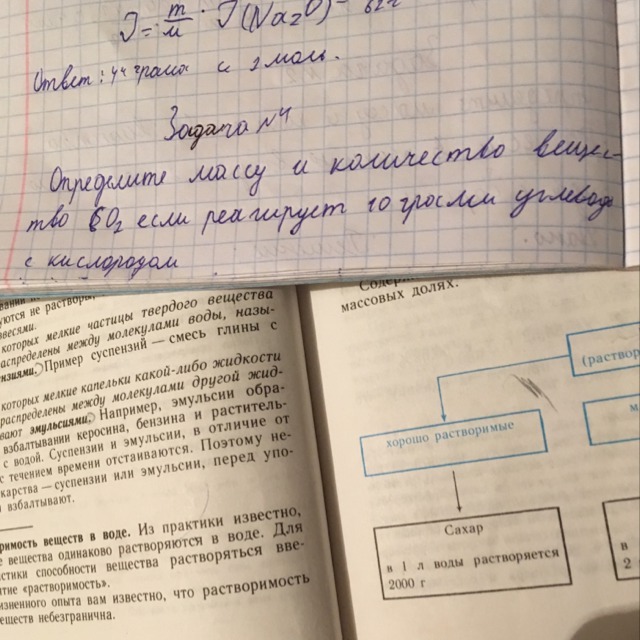 J = m/м · J(Na2O) = 62г
Ответ: 44 грама и 2 моль.
Задача №4
Определите массу и количество вещес-
тво CO2 если реагирует 10 грамм углевода
с кислородом
уются не растворы,
звесями.
которых мелкие частицы твердого вещества
аспределены между молекулами воды, назы-
нзиями. Пример суспензий — смесь глины с
которых мелкие капельки какой-либо жидкости
распределены между молекулами другой жид-
вают эмульсиями. Например, эмульсии обра-
взбалтывании керосина, бензина и раститель-
с водой. Суспензии и эмульсии, в отличие от
с течением времени отстаиваются. Поэтому не-
карства — суспензии или эмульсии, перед упо-
и взбалтывают.
римость веществ в воде. Из практики известно,
е вещества одинаково растворяются в воде. Для
истики способности вещества растворяться вве-
тие «растворимость».
изненного опыта вам известно, что растворимость
еществ небезгранична.
массовых долях.
(раствор
хорошо растворимые
м
Сахар
в 1 л воды растворяется
2000 г
в
2